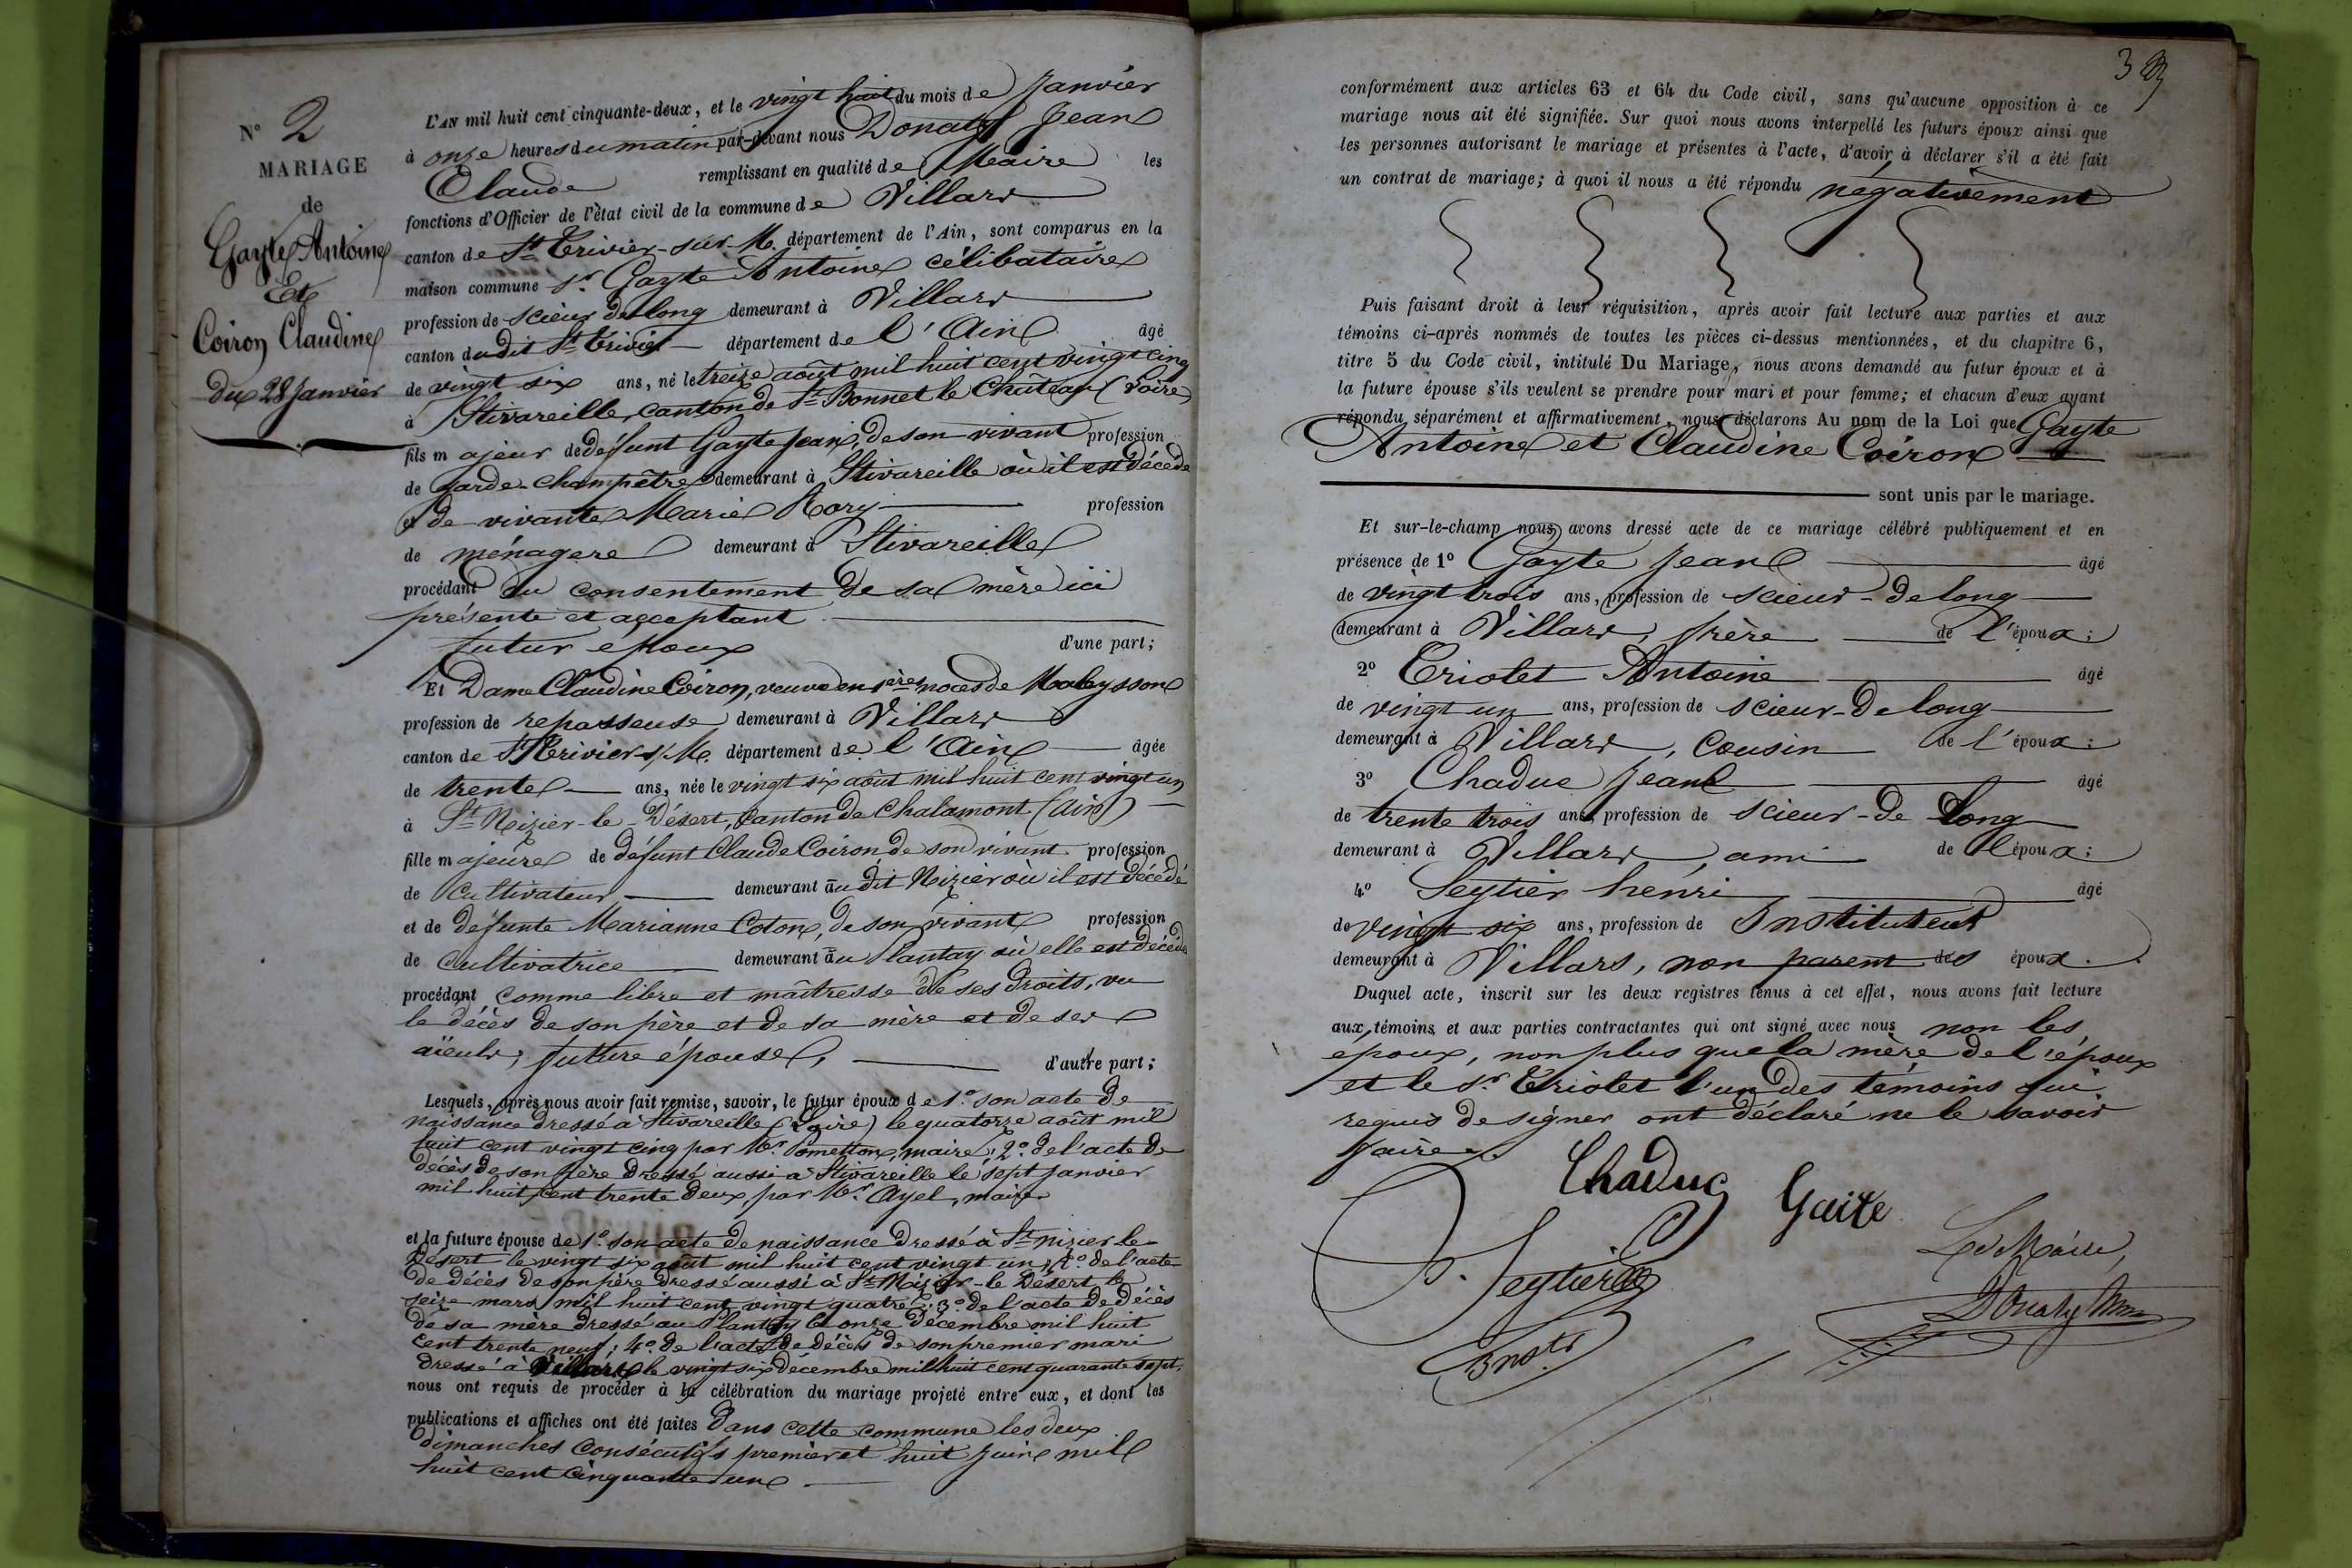 N° 2
MARIAGE
de
Gayte Antoine
Et
Coiron Claudine
du 28 Janvier
L'AN mil huit cent cinquante-deux, et le vingt huit du mois de Janvier
à onze heures du matin par-devant nous Donat Jean
Claude remplissant en qualité de Maire les
fonctions d'Officier de l'état civil de la commune de Villars
canton de St Trivier-sur-M. département de l'Ain, sont comparus en la
maison commune Sr Gayte Antoine célibataire
profession de scieur de long demeurant à Villars
canton dudit St Trivier département de l'Ain âgé
de vingt six ans, né le treize août mil huit cent vingt cinq
à Stivareille, canton de St Bonnet le Château (Loire)
fils majeur de défunt Gayte Jean, de son vivant profession
de garde-champêtre demeurant à Stivareille où il est décédé
et de vivante Marie Rory profession
de ménagere demeurant à Stivareille
procédant du consentement de sa mère ici
présente et acceptant
futur époux d'une part;
Et Dame Claudine Coiron, veuve en 1ères noces de Maleysson
profession de repasseuse demeurant à Villars
canton de St Trivier s/M. département de l'Ain âgée
de trente ans, née le vingt six août mil huit cent vingt un
à St Nizier-le-Désert, canton de Chalamont (Ain)
fille majeure de défunt Claude Coiron de son vivant profession
de cultivateur demeurant audit Nizier où il est décédé
et de défunte Marianne Coton, de son vivant profession
de cultivatrice demeurant au Plantay où elle est décédée
procédant comme libre et maîtresse de ses droits, vu
le décès de son père et de sa mère et de ses
aïeuls, future épouse, d'autre part;
Lesquels, après nous avoir fait remise, savoir, le futur époux de 1° son acte de
naissance dressé à Stivareille (Loire) le quatorze août mil
huit cent vingt cinq par Mr Pometton, maire; 2° de l'acte de
décès de son père dressé aussi à Stivareille le sept janvier
mil huit cent trente deux, par Mr Ayel, maire
et la future épouse de 1° son acte de naissance dressé à St nizier le
Désert le vingt six août mil huit cent vingt un; 2° de l'acte
de décès de son père dressé aussi à St Nizier-le Désert le
seize mars mil huit cent vingt quatre; 3° de l'acte de décès
de sa mère dressé au Plantay le onze décembre mil huit
cent trente neuf; 4° de l'acte de décès de son premier mari
dressé à Villars le vingt six décembre mil huit cent quarante sept.
nous ont requis de procéder à la célébration du mariage projeté entre eux, et dont les
publications et affiches ont été faites dans cette commune les deux
dimanches consécutifs premier et huit juin mil
huit cent cinquante un
3
conformément aux articles 63 et 64 du Code civil, sans qu'aucune opposition à ce
mariage nous ait été signifiée. Sur quoi nous avons interpellé les futurs époux ainsi que
les personnes autorisant le mariage et présentes à l'acte, d'avoir à déclarer s'il a été fait
un contrat de mariage; à quoi il nous a été répondu négativement
Puis faisant droit à leur réquisition, après avoir fait lecture aux parties et aux
témoins ci-après nommés de toutes les pièces ci-dessus mentionnées, et du chapitre 6,
titre 5 du Code civil, intitulé Du Mariage, nous avons demandé au futur époux et à
la future épouse s'ils veulent se prendre pour mari et pour femme; et chacun d'eux ayant
répondu séparément et affirmativement, nous déclarons Au nom de la Loi que Gayte
Antoine et Claudine Coiron
sont unis par le mariage.
Et sur-le-champ nous avons dressé acte de ce mariage célébré publiquement et en
présence de 1° Gayte Jean âgé
de vingt trois ans, profession de scieur-de long
demeurant à Villars, frère de l'époux;
2° Triolet Antoine âgé
de vingt un ans, profession de scieur-de long
demeurant à Villars, cousin de l'époux;
3° Chaduc Jean âgé
de trente trois ans, profession de scieur-de long
demeurant à Villars, ami de l'époux;
4° Seytier henri âgé
de vingt six ans, profession de Instituteur
demeurant à Villars, non parent des époux.
Duquel acte, inscrit sur les deux registres tenus à cet effet, nous avons fait lecture
aux témoins et aux parties contractantes qui ont signé avec nous non les
époux, non plus que la mère de l'époux
et le Sr Triolet l'un des témoins qui
requis de signer ont déclaré ne le savoir
faire.
Chaduc
Gaite
Seytier
Instr
Le Maire,
Donat